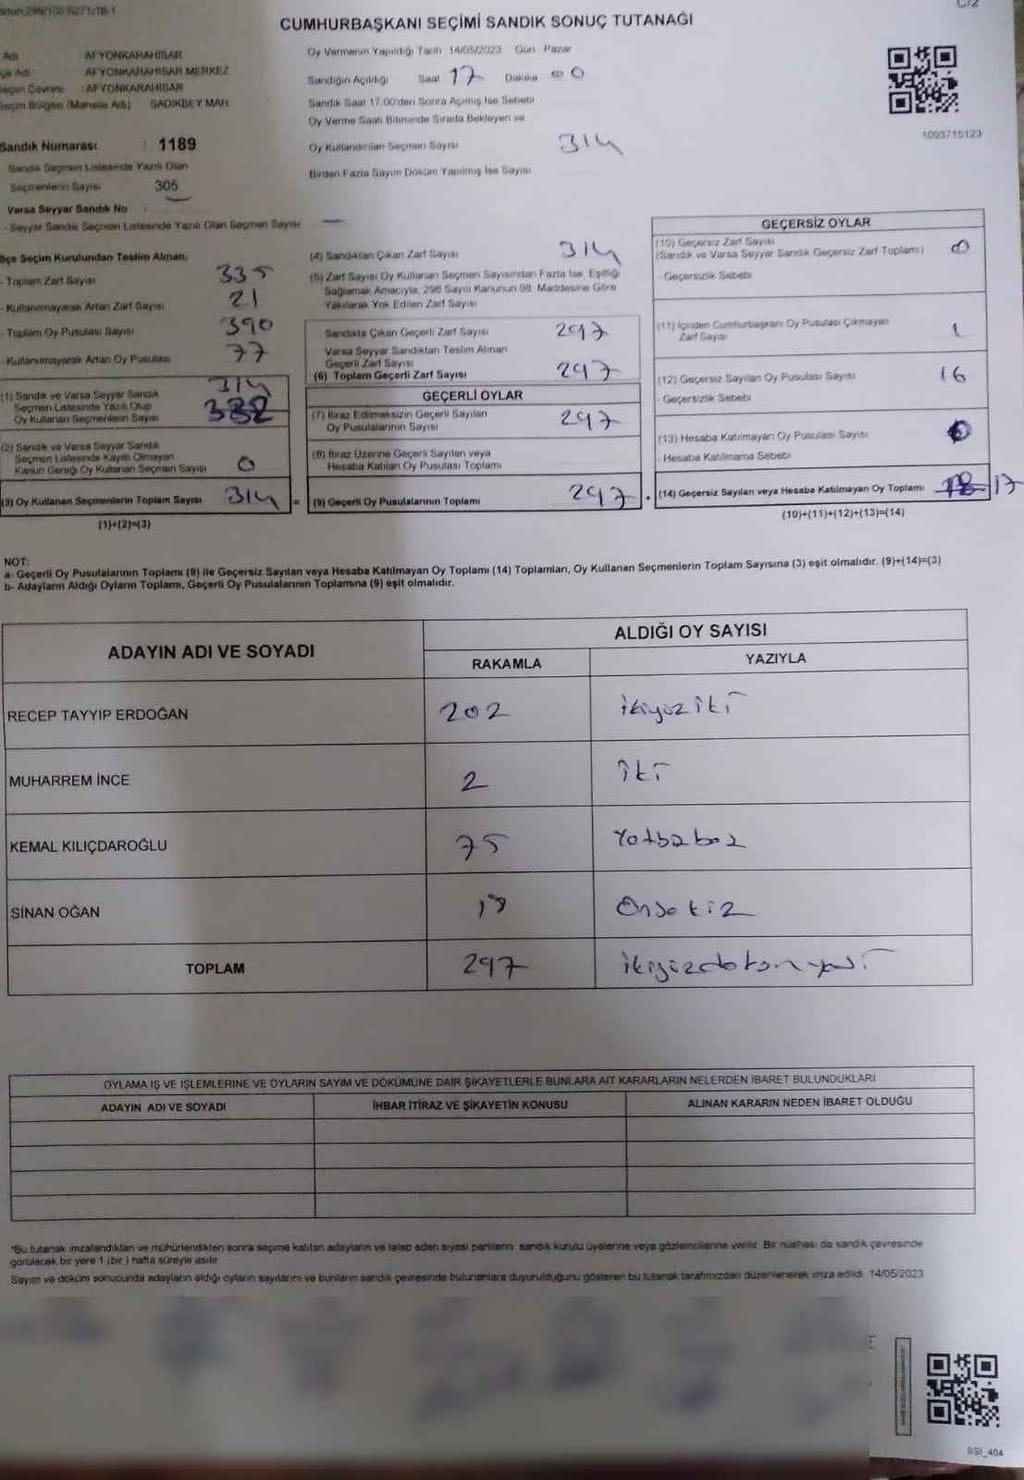 C/2
CUMHURBAŞKANI SEÇİMİ SANDIK SONUÇ TUTANAĞI
Adı AFYONKARAHİSAR
Adı AFYONKARAHİSAR MERKEZ
Seçim Çevresi : AFYONKARAHİSAR
Seçim Bölgesi (Mahalle Adı) SADIKBEY MAH
Oy Vermenin Yapıldığı Tarih 14/05/2023 Gün Pazar
Sandığın Açıldığı Saat 17 Dakika 00
Sandık Saat 17.00'den Sonra Açılmış İse Sebebi
Oy Verme Saati Bitiminde Sırada Bekleyen ve
Oy Kullandırılan Seçmen Sayısı 314
Birden Fazla Sayım Döküm Yapılmış İse Sayısı
1093715123
Sandık Numarası : 1189
Sandık Seçmen Listesinde Yazılı Olan
Seçmenlerin Sayısı 305
Varsa Seyyar Sandık No :
- Seyyar Sandık Seçmen Listesinde Yazılı Olan Seçmen Sayısı —
İlçe Seçim Kurulundan Teslim Alınan;
- Toplam Zarf Sayısı 335
- Kullanılmayarak Artan Zarf Sayısı 21
- Toplam Oy Pusulası Sayısı 390
- Kullanılmayarak Artan Oy Pusulası 77
(1) Sandık ve Varsa Seyyar Sandık
Seçmen Listesinde Yazılı Olup
Oy Kullanan Seçmenlerin Sayısı 314
(2) Sandık ve Varsa Seyyar Sandık
Seçmen Listesinde Kayıtlı Olmayan
Kanun Gereği Oy Kullanan Seçmen Sayısı 0
(3) Oy Kullanan Seçmenlerin Toplam Sayısı 314 =
(1)+(2)=(3)
(4) Sandıktan Çıkan Zarf Sayısı 314
(5) Zarf Sayısı Oy Kullanan Seçmen Sayısından Fazla İse, Eşitliği
Sağlamak Amacıyla, 298 Sayılı Kanunun 98. Maddesine Göre
Yakılarak Yok Edilen Zarf Sayısı
Sandıkta Çıkan Geçerli Zarf Sayısı 297
Varsa Seyyar Sandıktan Teslim Alınan
Geçerli Zarf Sayısı
(6) Toplam Geçerli Zarf Sayısı 297
GEÇERLİ OYLAR
(7) İtiraz Edilmeksizin Geçerli Sayılan
Oy Pusulalarının Sayısı 297
(8) İtiraz Üzerine Geçerli Sayılan veya
Hesaba Katılan Oy Pusulası Toplamı
(9) Geçerli Oy Pusulalarının Toplamı 297
GEÇERSİZ OYLAR
(10) Geçersiz Zarf Sayısı
(Sandık ve Varsa Seyyar Sandık Geçersiz Zarf Toplamı) 0
- Geçersizlik Sebebi
(11) İçinden Cumhurbaşkanı Oy Pusulası Çıkmayan
Zarf Sayısı 1
(12) Geçersiz Sayılan Oy Pusulası Sayısı 16
- Geçersizlik Sebebi
(13) Hesaba Katılmayan Oy Pusulası Sayısı 0
- Hesaba Katılmama Sebebi
(14) Geçersiz Sayılan veya Hesaba Katılmayan Oy Toplamı 17
(10)+(11)+(12)+(13)=(14)
NOT:
a- Geçerli Oy Pusulalarının Toplamı (9) ile Geçersiz Sayılan veya Hesaba Katılmayan Oy Toplamı (14) Toplamları, Oy Kullanan Seçmenlerin Toplam Sayısına (3) eşit olmalıdır. (9)+(14)=(3)
b- Adayların Aldığı Oyların Toplamı, Geçerli Oy Pusulalarının Toplamına (9) eşit olmalıdır.
ADAYIN ADI VE SOYADI
ALDIĞI OY SAYISI
RAKAMLA YAZIYLA
RECEP TAYYİP ERDOĞAN 202 ikiyüziki
MUHARREM İNCE 2 iki
KEMAL KILIÇDAROĞLU 75
SİNAN OĞAN 18 Onsekiz
TOPLAM 297
OYLAMA İŞ VE İŞLEMLERİNE VE OYLARIN SAYIM VE DÖKÜMÜNE DAİR ŞİKAYETLERLE BUNLARA AİT KARARLARIN NELERDEN İBARET BULUNDUKLARI
ADAYIN ADI VE SOYADI İHBAR İTİRAZ VE ŞİKAYETİN KONUSU ALINAN KARARIN NEDEN İBARET OLDUĞU
*Bu tutanak imzalandıktan ve mühürlendikten sonra seçime katılan adayların ve talep eden siyasi partilerin sandık kurulu üyelerine veya gözlemcilerine verilir. Bir nüshası da sandık çevresinde
görülecek bir yere 1 (bir) hafta süreyle asılır
Sayım ve döküm sonucunda adayların aldığı oyların sayılarını ve bunların sandık çevresinde bulunanlara duyurulduğunu gösteren bu tutanak tarafımızdan düzenlenerek imza edildi. 14/05/2023
SSI_404